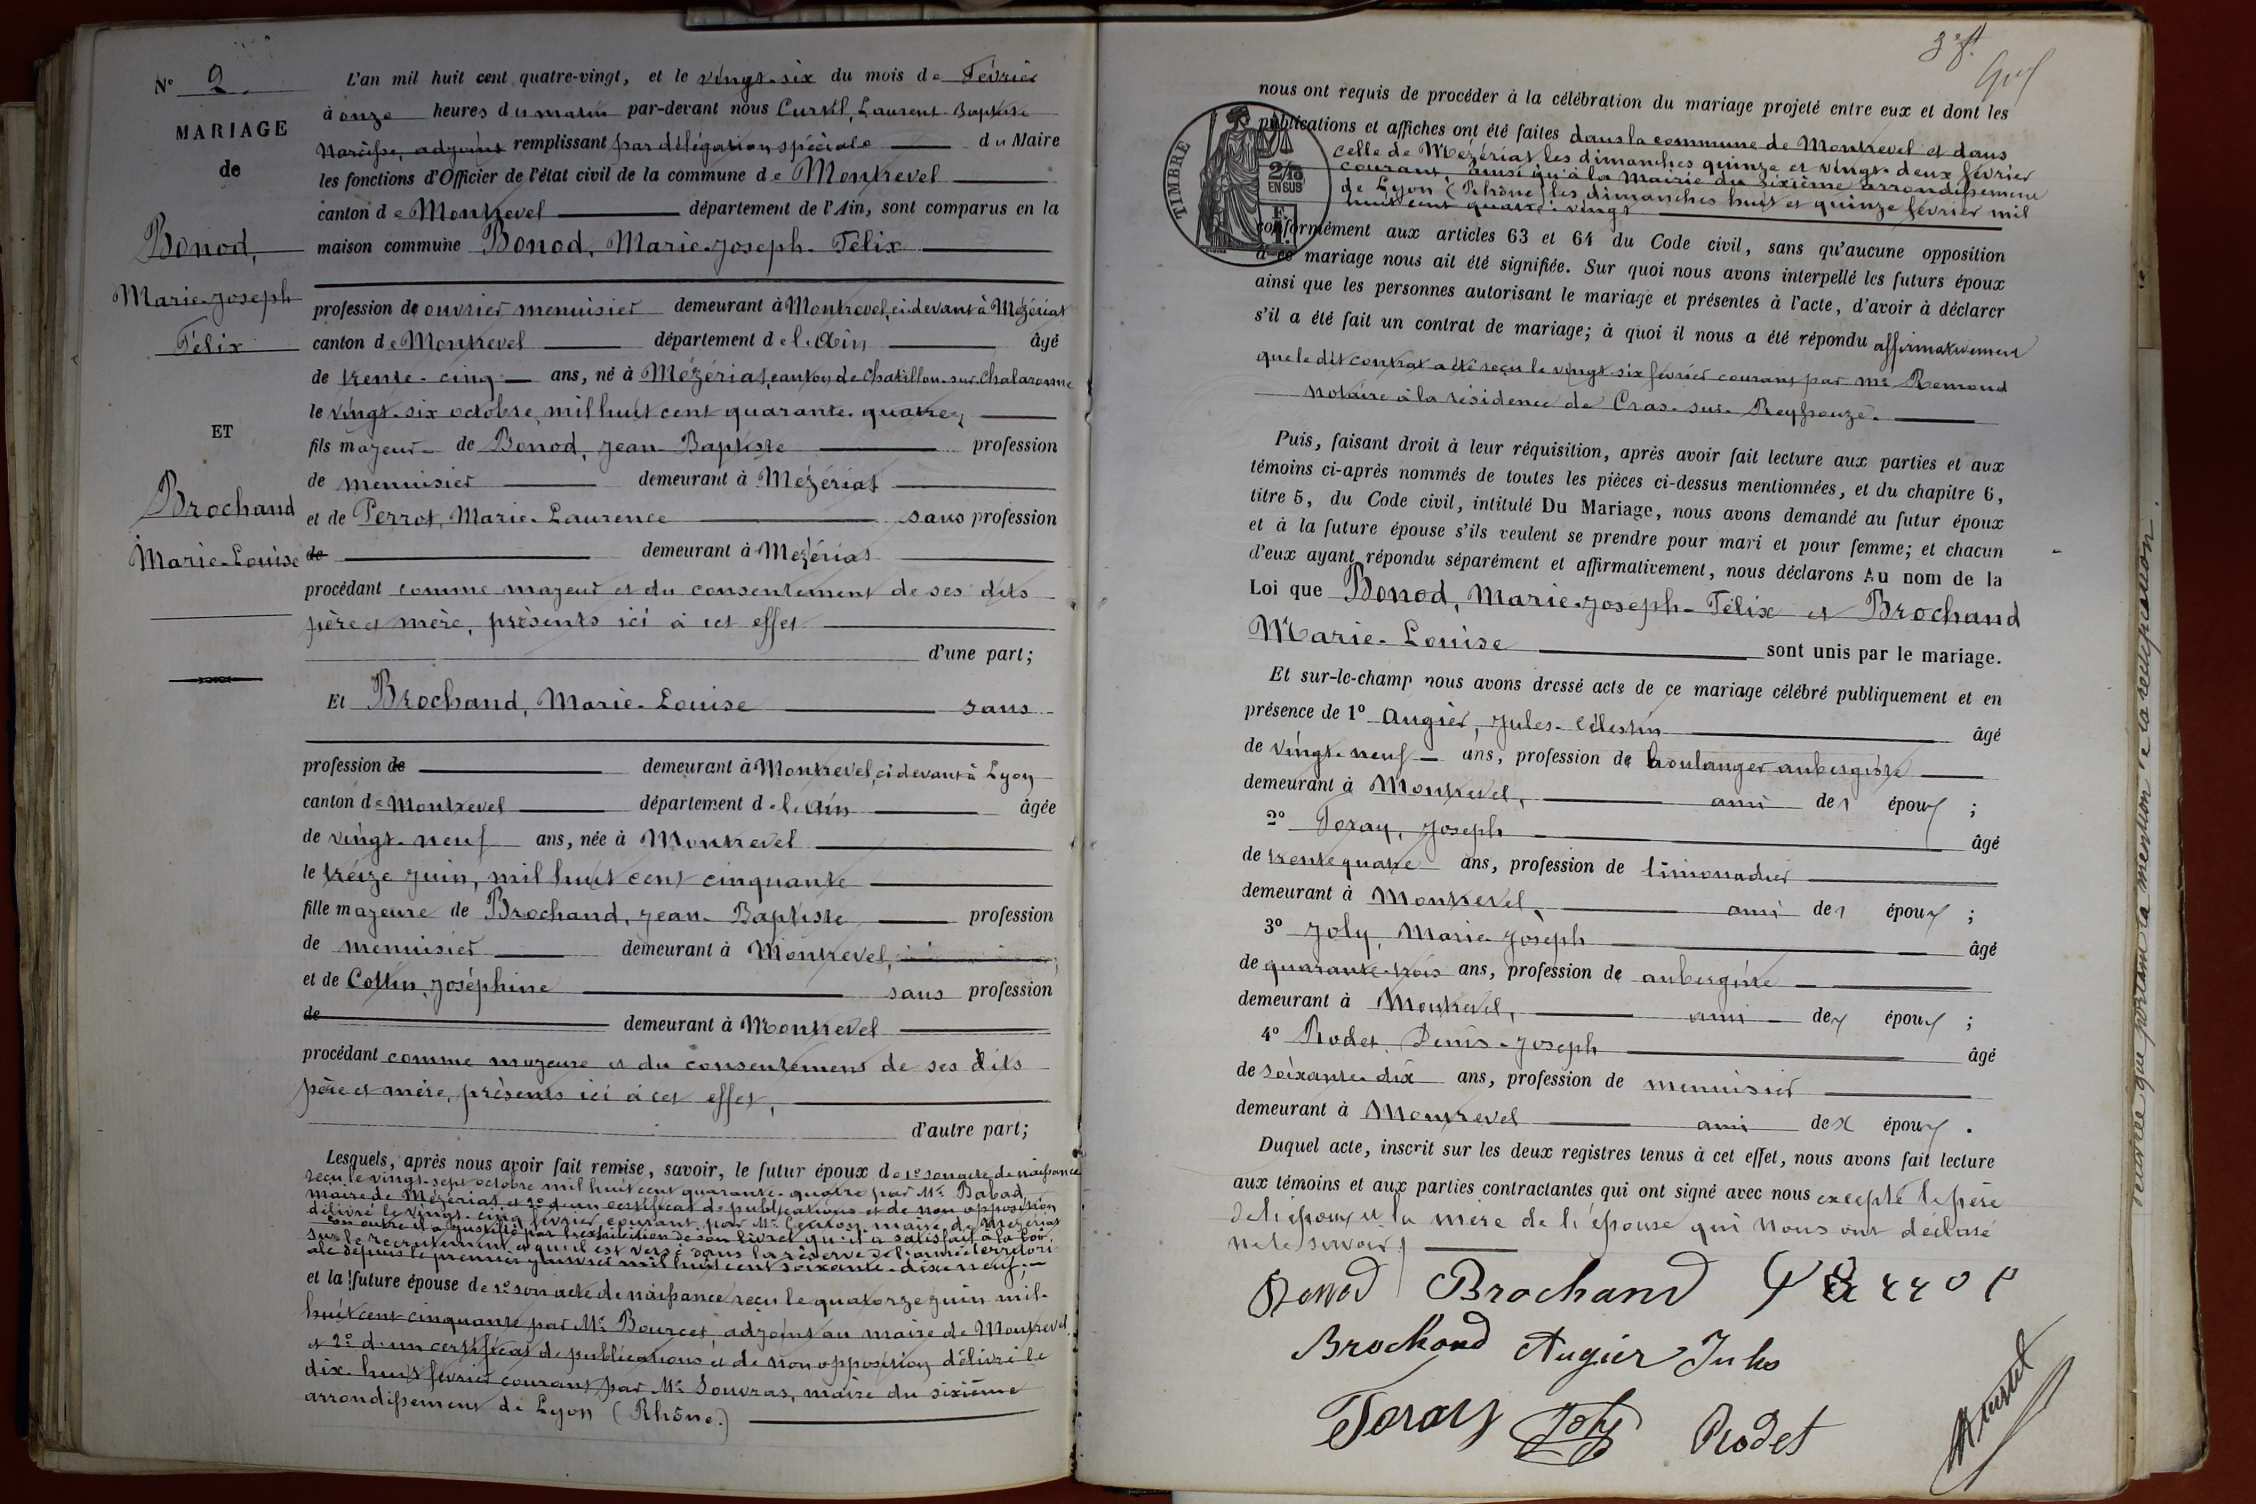 N° 2.
MARIAGE
de
Bonod,
Marie-Joseph
Félix
ET
Brochand
Marie-Louise
L'an mil huit cent quatre-vingt, et le vingt-six du mois de Février
à onze heures du matin par-devant nous Curtil, Laurent-Baptiste
Narcisse, adjoint remplissant par délégation spéciale du Maire
les fonctions d'Officier de l'état civil de la commune de Montrevel
canton de Montrevel département de l'Ain, sont comparus en la
maison commune Bonod, Marie-Joseph-Félix
profession de ouvrier menuisier demeurant à Montrevel, ci devant à Mézériat
canton de Montrevel département de l'Ain âgé
de trente-cinq ans, né à Mézériat, canton de Chatillon-sur-Chalaronne
le vingt-six octobre, mil huit cent quarante-quatre,
fils majeur de Bonod, Jean-Baptiste profession
de menuisier demeurant à Mézériat
et de Perrot, Marie-Laurence sans profession
de demeurant à Mézériat
procédant comme majeur et du consentement de ses dits
père et mère, présents ici à cet effet
d'une part;
Et Brochand, Marie-Louise sans
profession de demeurant à Montrevel, ci devant à Lyon
canton de Montrevel département de l'Ain âgée
de vingt-neuf ans, née à Montrevel
le treize juin, mil huit cent cinquante
fille majeure de Brochand, Jean-Baptiste profession
de menuisier demeurant à Montrevel,
et de Collin, Joséphine sans profession
de demeurant à Montrevel
procédant comme majeure et du consentement de ses dits
père et mère, présents ici à cet effet,
d'autre part;
Lesquels, après nous avoir fait remise, savoir, le futur époux de 1° son acte de naissance
reçu le vingt-sept octobre mil huit cent quarante-quatre par Mr Babad,
maire de Mézériat et 2° d'un certificat de publications et de non opposition
délivré le vingt-cinq février courant par Mr maire de Mézériat
en outre il a justifié par l'exhibition de son livret qu'il a satisfait à la loi
sur le recrutement et qu'il est versé dans la réserve de l'armée territori-
ale depuis le premier janvier mil huit cent soixante-dix-neuf;
et la future épouse de 1° son acte de naissance reçu le quatorze juin mil-
huit cent cinquante par Mr Bourcet, adjoint au maire de Montrevel
et 2° d'un certificat de publications et de non opposition délivré le
dix-huit février courant par Mr Souvras, maire du sixième
arrondissement de Lyon (Rhône.)
nous ont requis de procéder à la célébration du mariage projeté entre eux et dont les
publications et affiches ont été faites dans la commune de Montrevel et dans
celle de Mézériat les dimanches quinze et vingt-deux février
courant, ainsi qu'à la Mairie du sixième arrondissement
de Lyon (Rhône) les dimanches huit et quinze février mil
huit cent quatre-vingt
TIMBRE
2/10
EN SUS
conformément aux articles 63 et 64 du Code civil, sans qu'aucune opposition
à ce mariage nous ait été signifiée. Sur quoi nous avons interpellé les futurs époux
ainsi que les personnes autorisant le mariage et présentes à l'acte, d'avoir à déclarer
s'il a été fait un contrat de mariage; à quoi il nous a été répondu affirmativement
que le dit contrat a été reçu le vingt-six février courant par Me Remond
notaire à la résidence de Cras-sur-Reyssouze.
Puis, faisant droit à leur réquisition, après avoir fait lecture aux parties et aux
témoins ci-après nommés de toutes les pièces ci-dessus mentionnées, et du chapitre 6,
titre 5, du Code civil, intitulé Du Mariage, nous avons demandé au futur époux
et à la future épouse s'ils veulent se prendre pour mari et pour femme; et chacun
d'eux ayant répondu séparément et affirmativement, nous déclarons Au nom de la
Loi que Bonod, Marie-Joseph-Félix et Brochand
Marie-Louise sont unis par le mariage.
Et sur-le-champ nous avons dressé acte de ce mariage célébré publiquement et en
présence de 1° Augier, Jules-Célestin âgé
de vingt-neuf ans, profession de boulanger aubergiste
demeurant à Montrevel, ami des époux ;
2° Foray, Joseph âgé
de trente quatre ans, profession de limonadier
demeurant à Montrevel, ami des époux ;
3° Joly, Marie-Joseph âgé
de quarante-trois ans, profession de aubergiste
demeurant à Montrevel, ami des époux ;
4° Rodet, Denis-Joseph âgé
de soixante-dix ans, profession de menuisier
demeurant à Montrevel ami des époux.
Duquel acte, inscrit sur les deux registres tenus à cet effet, nous avons fait lecture
aux témoins et aux parties contractantes qui ont signé avec nous excepté le père
de l'époux et la mère de l'épouse qui nous ont déclaré
ne le savoir
Bonod Brochand Perrot
Brochand Augier Jules
Foray Joly Rodet
Curtil
que portant la mention